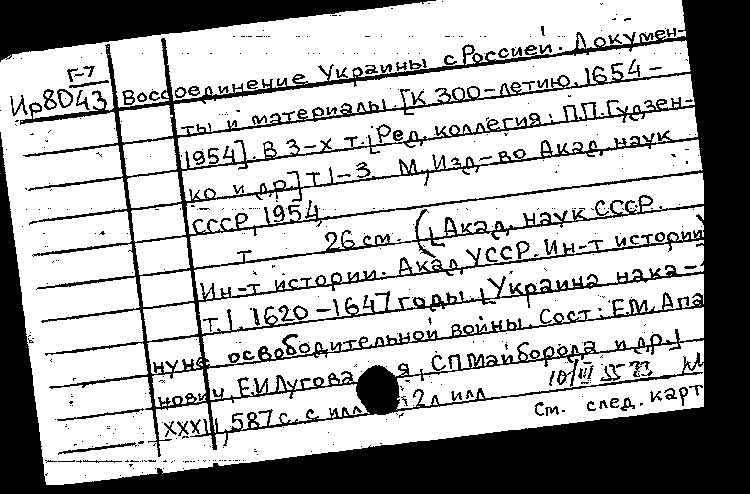 Г-7
Ир8043 Воссоединение Украины с Россией. Докумен-
ты и материалы. [К 300-летию. 1654-
1954]. В 3-х т. [Ред. коллегия: П.П.Гудзен-
ко и др.] т 1-3. М., Изд-во Акад. наук
СССР, 1954,
т. 26 см. ([Акад. наук СССР.
Ин-т истории. Акад. УССР. Ин-т истории)
т. 1. 1620-1647 годы. [Украина нака-
нуне освободительной войны. Сост: Е.М. Апа
нович, Е.И Лугова я, С.П Майборода и др.]
XXXII, 587 с. с илл 2 л илл 10/III 55
См. след. карт